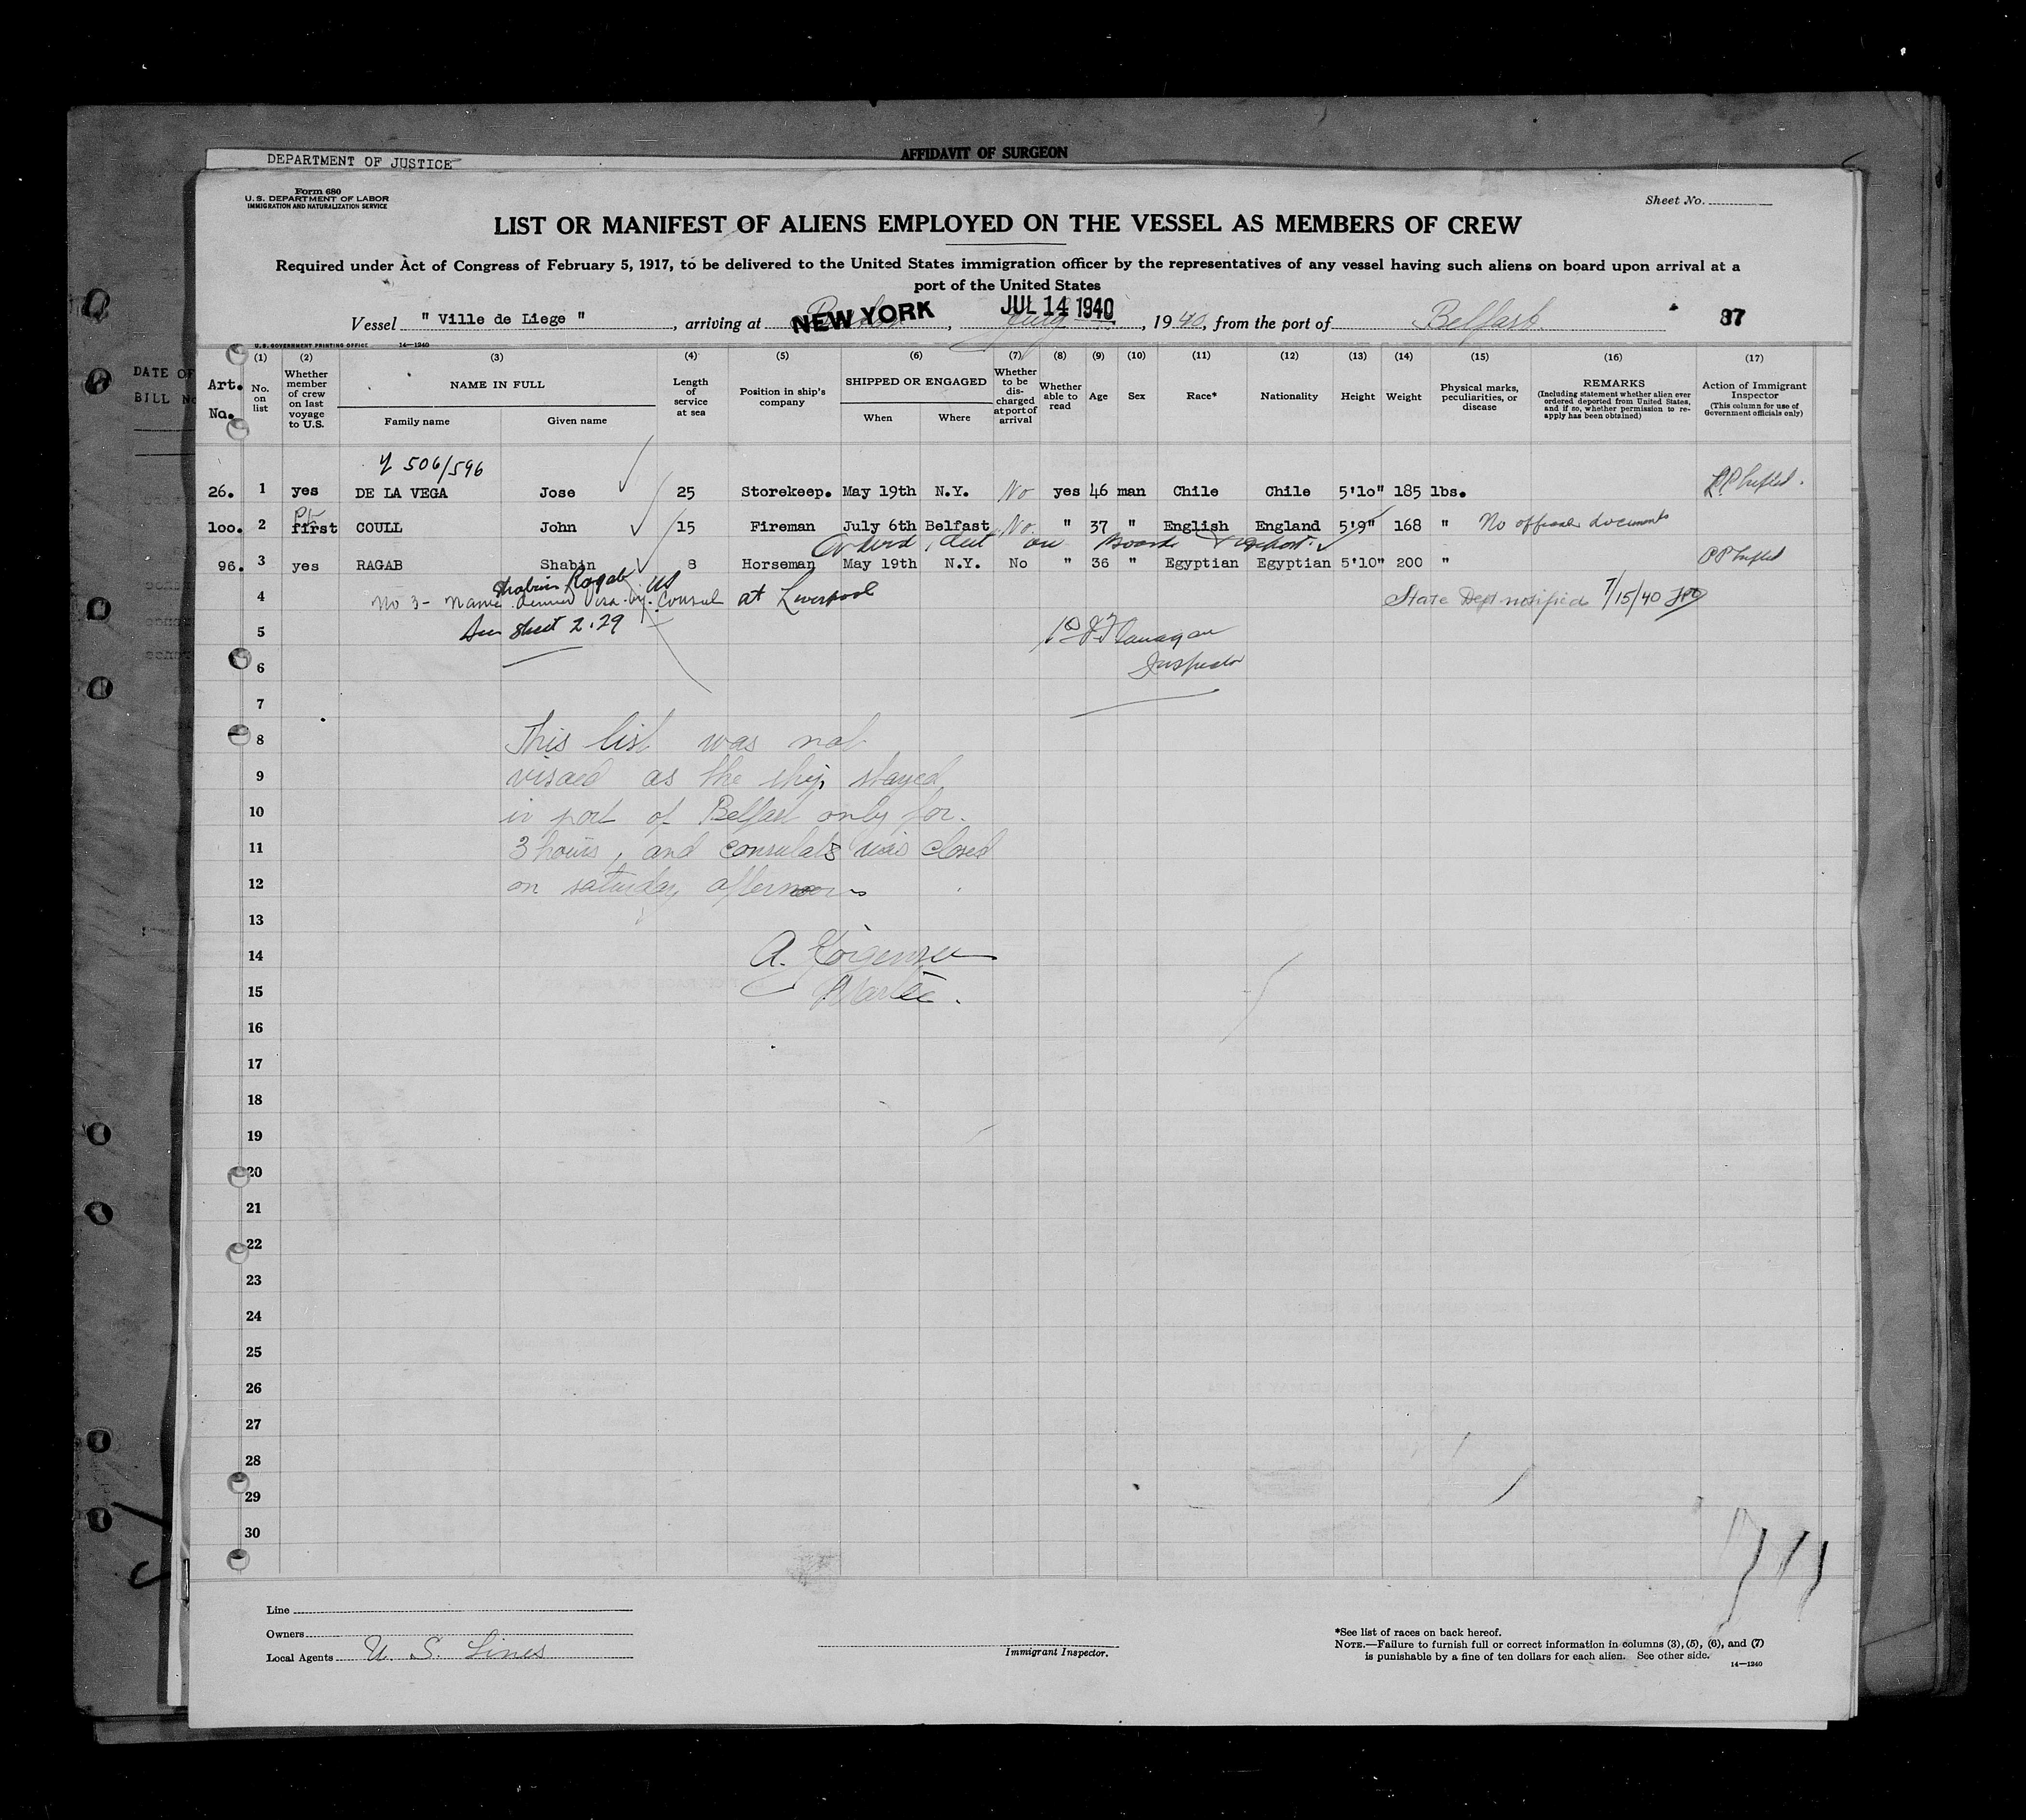 DEPARTMENT OF JUSTICE
AFFIDAVIT OF SURGEON
Form 680
U. S. DEPARTMENT OF LABOR
IMMIGRATION AND NATURALIZATION SERVICE
Sheet No.
LIST OR MANIFEST OF ALIENS EMPLOYED ON THE VESSEL AS MEMBERS OF CREW
Required under Act of Congress of February 5, 1917, to be delivered to the United States immigration officer by the representatives of any vessel having such aliens on board upon arrival at a
port of the United States
Vessel " Ville de Liege ", arriving at NEW YORK, JUL 14 1940, 1940, from the port of Belfast 37
U. S. GOVERNMENT PRINTING OFFICE 14—1240
DATE OF
BILL No
(1) (2) (3) (4) (5) (6) (7) (8) (9) (10) (11) (12) (13) (14) (15) (16) (17)
Art. No.
No. on list
Whether member of crew on last voyage to U.S.
NAME IN FULL
Family name
Given name
Length of service at sea
Position in ship's company
SHIPPED OR ENGAGED
When
Where
Whether to be discharged at port of arrival
Whether able to read
Age
Sex
Race*
Nationality
Height
Weight
Physical marks, peculiarities, or disease
REMARKS
(Including statement whether alien ever ordered deported from United States, and if so, whether permission to reapply has been obtained)
Action of Immigrant Inspector
(This column for use of Government officials only)
506/596
26. 1 yes DE LA VEGA Jose 25 Storekeep. May 19th N.Y. No yes 46 man Chile Chile 5'10" 185 lbs.
100. 2 first COULL John 15 Fireman July 6th Belfast No " 37 " English England 5'9" 168 " No official documents
Ordered det on board
96. 3 yes RAGAB Shabin 8 Horseman May 19th N.Y. No " 36 " Egyptian Egyptian 5'10" 200 "
Shabin Ragab US
4 No 3 - Name denied visa by Consul at Liverpool State Dept notified 7/15/40
5 See sheet 2.29 Flanagan
6 Inspector
7
8 This list was not
9 visaed as the ship stayed
10 in port of Belfast only for
11 3 hours, and consulate was closed
12 on saturday afternoon
13
14 A. Jörgensen
15 Master.
16
17
18
19
20
21
22
23
24
25
26
27
28
29
30
Line
Owners
Local Agents U. S. Lines
Immigrant Inspector.
*See list of races on back hereof.
NOTE.—Failure to furnish full or correct information in columns (3), (5), (6), and (7)
is punishable by a fine of ten dollars for each alien. See other side.
14—1240